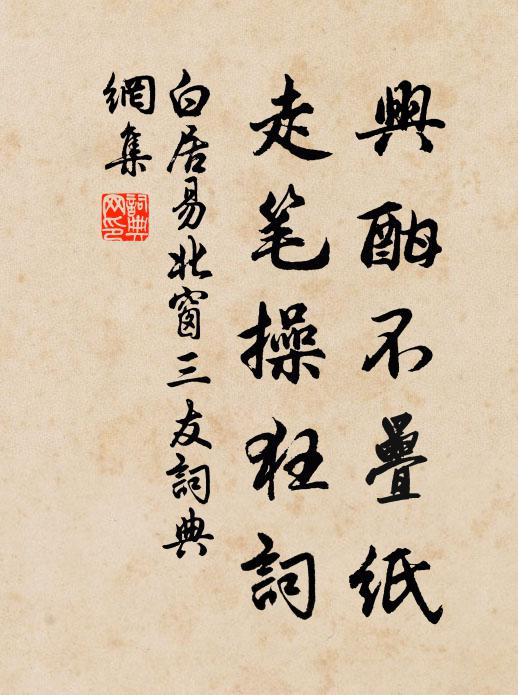 興酣不疊紙
走笔操狂詞
白居易北窗三友詞典
網集
詞典
网印